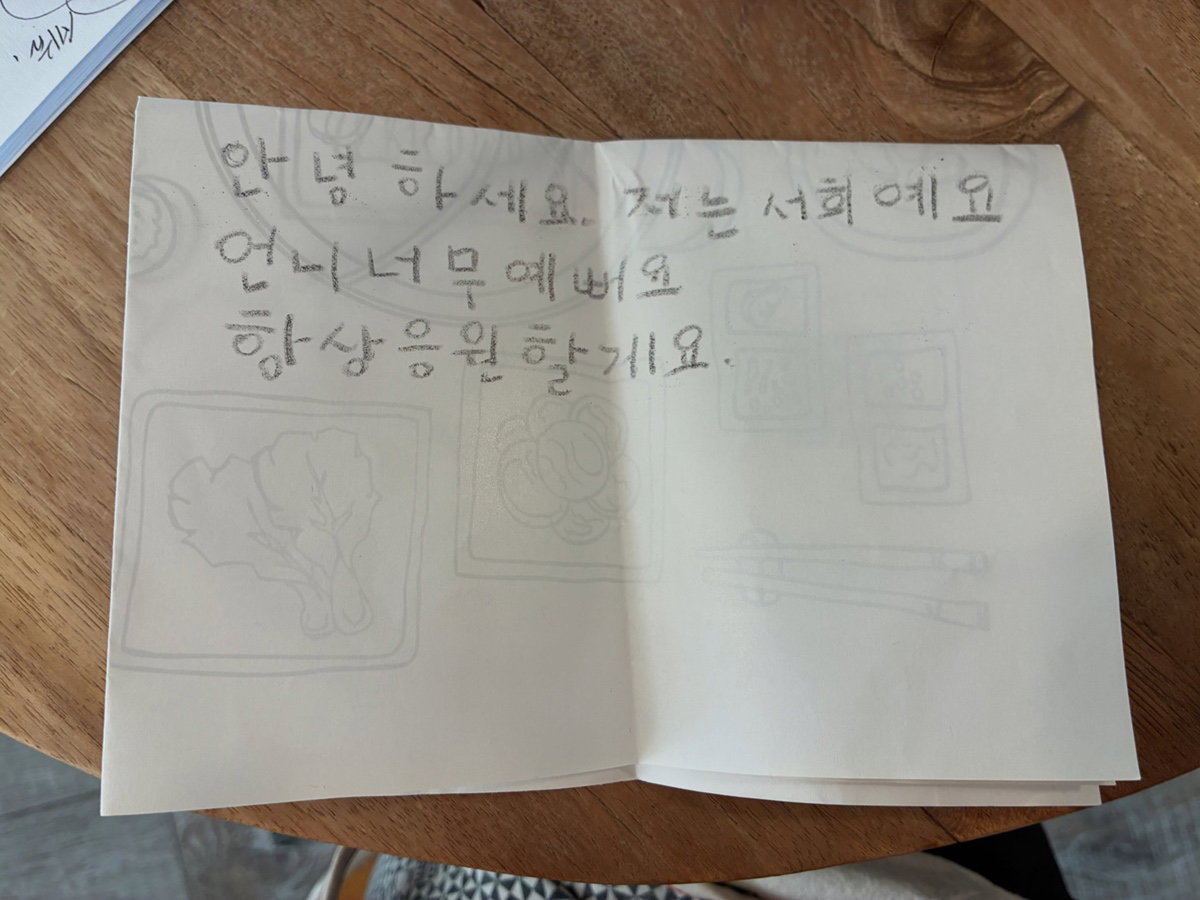 안녕하세요. 저는 서희예요
언니 너무 예뻐요
항상 응원할게요.